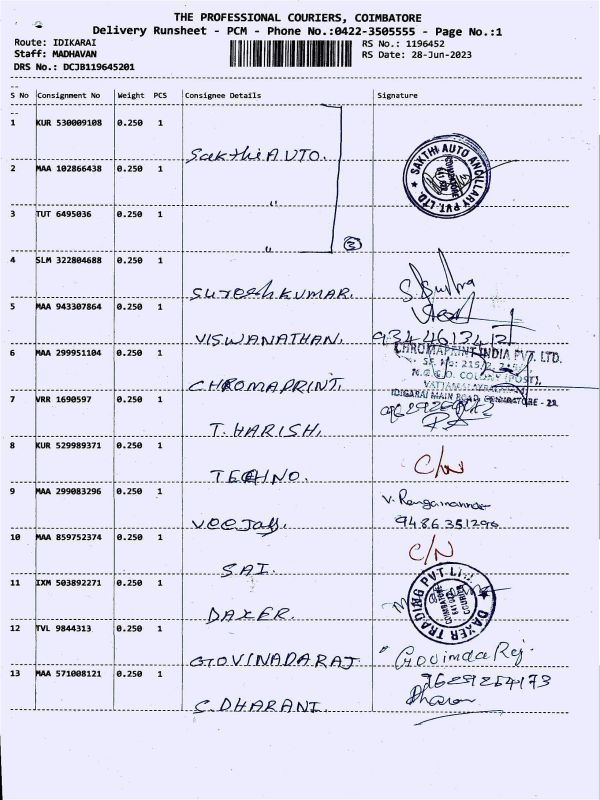 THE PROFESSIONAL COURIERS, COIMBATORE
Delivery Runsheet - PCM - Phone No.:0422-3505555 - Page No.:1
Route: IDIKARAI
RS No.: 1196452
Staff: MADHAVAN
RS Date: 28-Jun-2023
DRS No.: DCJB119645201
S No Consignment No Weight PCS Consignee Details Signature
1 KUR 530009108 0.250 1
Sakthi AUTO.
SAKTHI AUTO ANCILLARY PVT. LTD.
2 MAA 102866438 0.250 1
"
3 TUT 6495036 0.250 1
" 3
4 SLM 322804688 0.250 1
SURESH KUMAR.
5 MAA 943307864 0.250 1
VISWANATHAN.
6 MAA 299951104 0.250 1
CHROMAPRINT INDIA PVT. LTD.
CHROMAPRINT.
IDIGARAI MAIN ROAD, COIMBATORE - 22
7 VRR 1690597 0.250 1
T. HARISH.
8 KUR 529989371 0.250 1
C/N
TECHNO.
9 MAA 299083296 0.250 1
Veejay.
9486351296
10 MAA 859752374 0.250 1
C/N
SAI.
11 IXM 503892271 0.250 1
DAXER.
DAXER TRADING PVT LTD
12 TVL 9844313 0.250 1
GOVINADARAJ
Govinda Rej.
13 MAA 571008121 0.250 1
7629254173
S. DHARANI.
Dharan